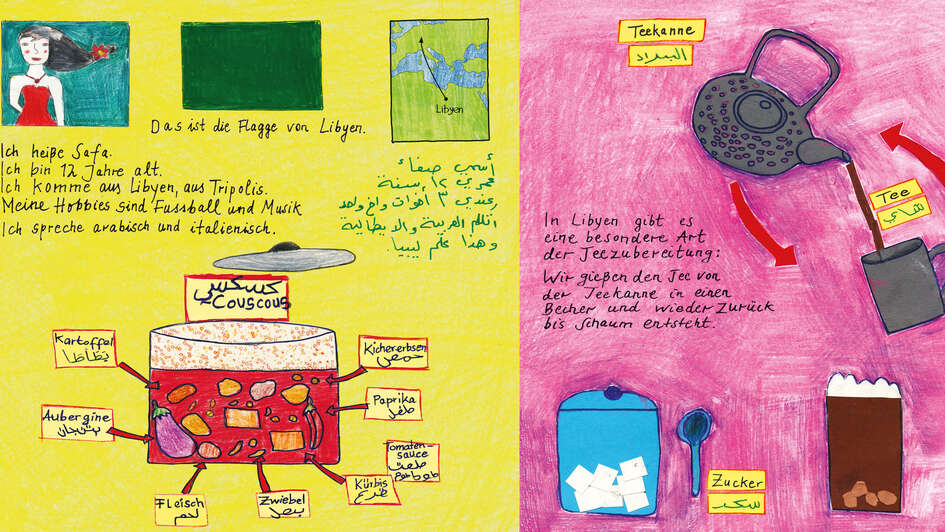 Das ist die Flagge von Libyen.
Libyen
Ich heiße Safa.
Ich bin 12 Jahre alt.
Ich komme aus Libyen, aus Tripolis.
Meine Hobbies sind Fussball und Musik
Ich spreche arabisch und italienisch.
أسمي صفاء
عمري ١٢ سنة
وعندي ٣ أخوات وأخ واحد
اتكلم العربية والايطالية
وهذا علم ليبيا
كسكسي
Couscous
Kartoffel
بظاظا
Kichererbsen
حمص
Aubergine
بتنجان
Paprika
فلفل
Tomaten-
sauce
Kürbis
Fleisch
لحم
Zwiebel
بصل
Teekanne
البراد
Tee
شاي
In Libyen gibt es
eine besondere Art
der Teezubereitung:
Wir gießen den Tee von
der Teekanne in einen
Becher und wieder zurück
bis Schaum entsteht.
Zucker
سكر